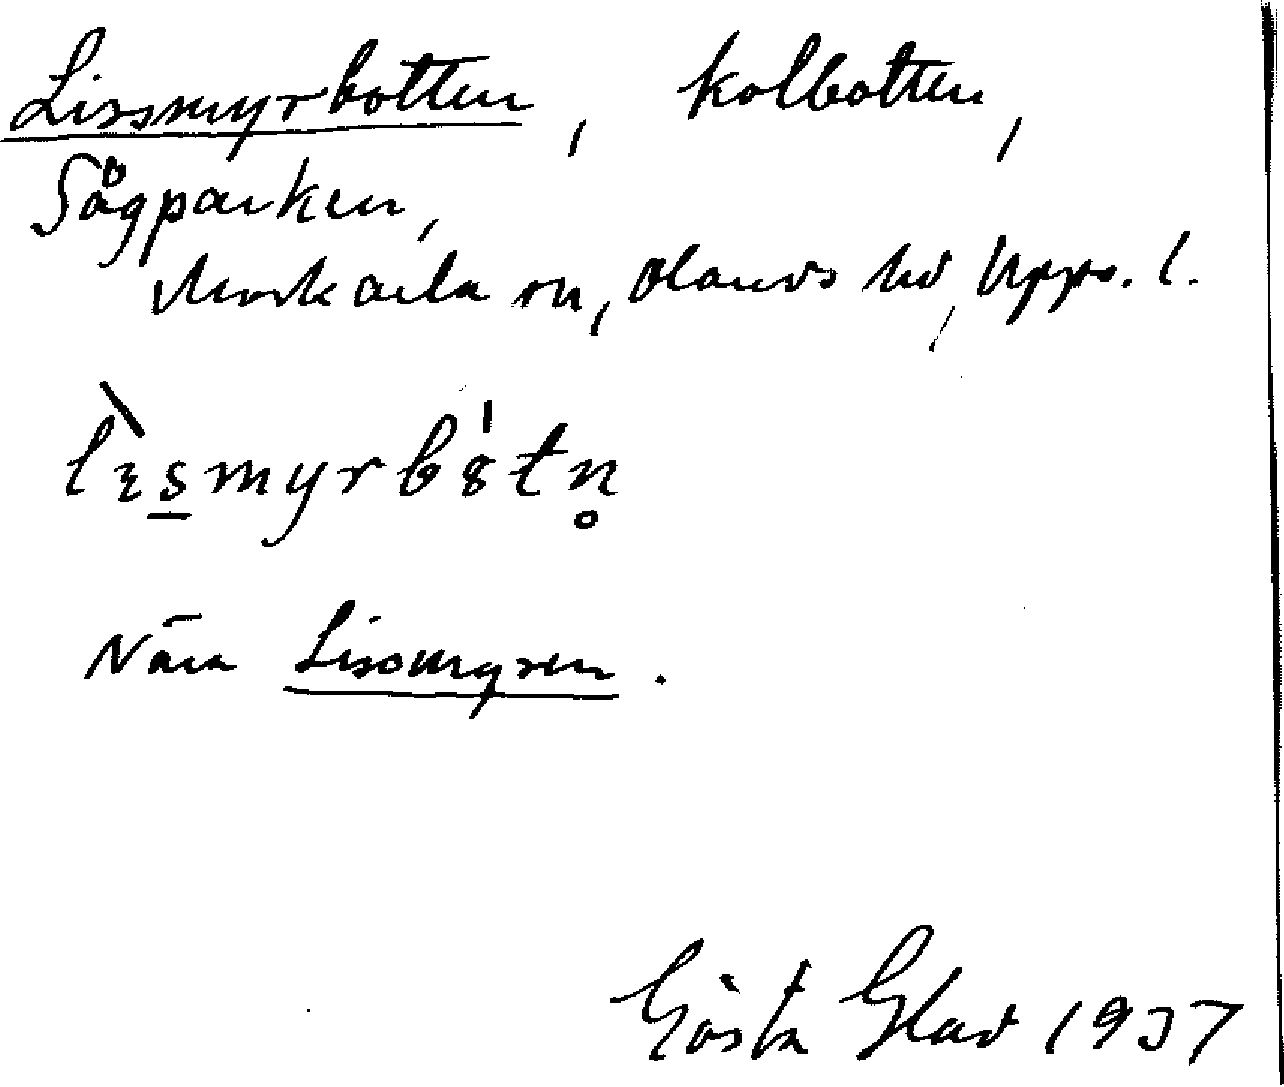 Lissmyrbotten, kolbotten,
Sågparken,
Morkarla sn, Olands hd, Upps. l.
lɪsmyrb 8tn̥
Nära Lissmyren.
Gösta Glad 1937